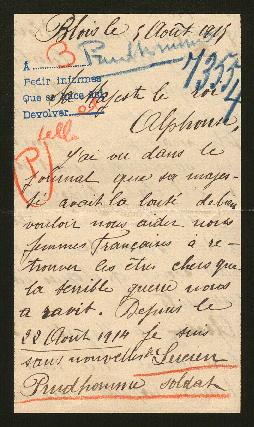 Blois le 5 Août 1915
Prudhomme
A
Pedir informes
Que se hace
Devolver
73554
sa majesté le roi
Alphonse,
J'ai vu dans le
journal que sa majes-
té avait la bonté de bien
vouloir nous aider nous
femmes Françaises à re-
trouver les êtres chers que
la terrible guerre nous
a ravit. Depuis le
22 Août 1914 je suis
sans nouvelles de Lucien
Prudhomme soldat
P